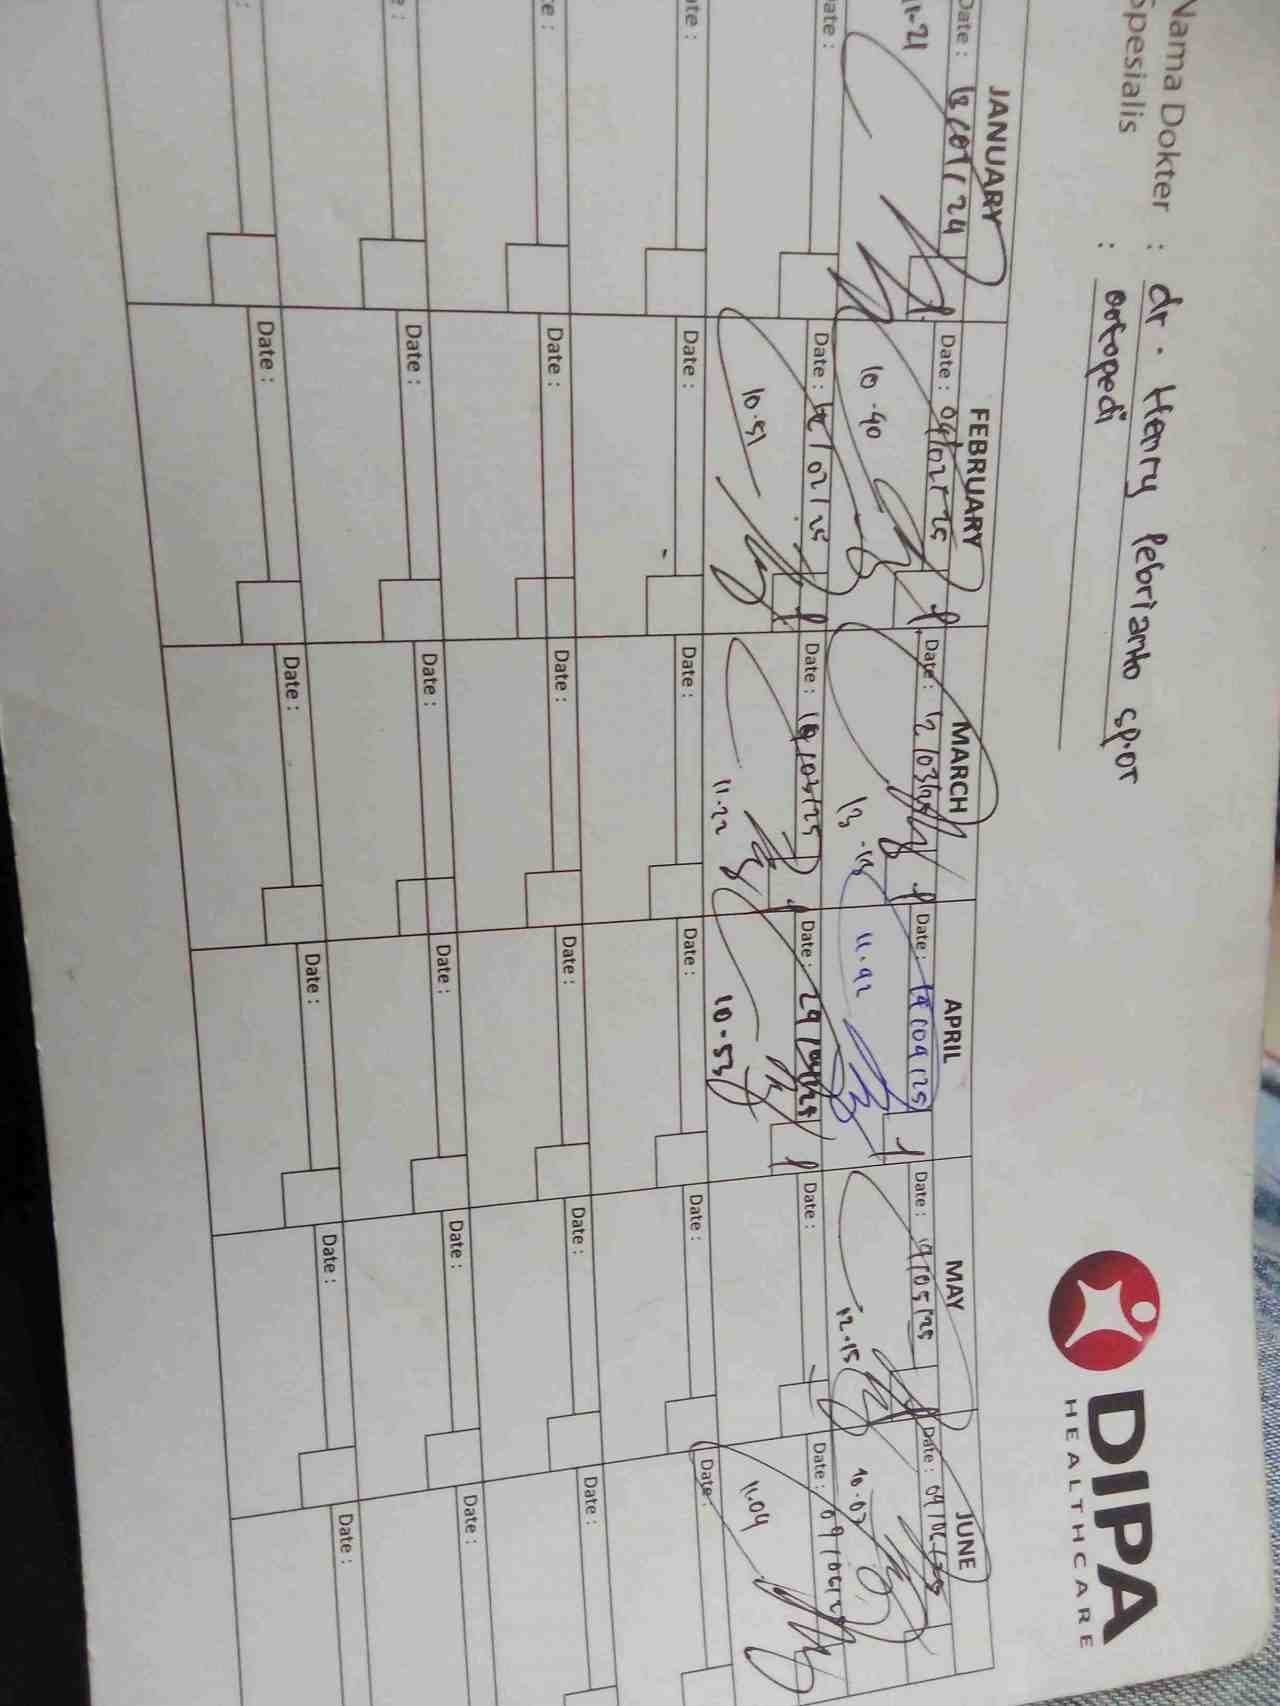 Nama Dokter : dr. Henry Pebrianto sp.or
Spesialis : ortopedi
DIPA
HEALTHCARE
JANUARY FEBRUARY MARCH APRIL MAY JUNE
Date : 13/01/24 Date : 04/02/25 Date : 12/03/25 Date : Date : 19/05/25 Date :
11-21 10.40 11.42 12.15 10.07
Date : Date : 12/02/25 Date : Date : 29/04/25 Date : Date : 09/06/25
10.51 11.22 10.53 11.04
Date : Date : Date : Date : Date : Date :
Date : Date : Date : Date : Date : Date :
Date : Date : Date : Date : Date : Date :
Date : Date : Date : Date : Date :